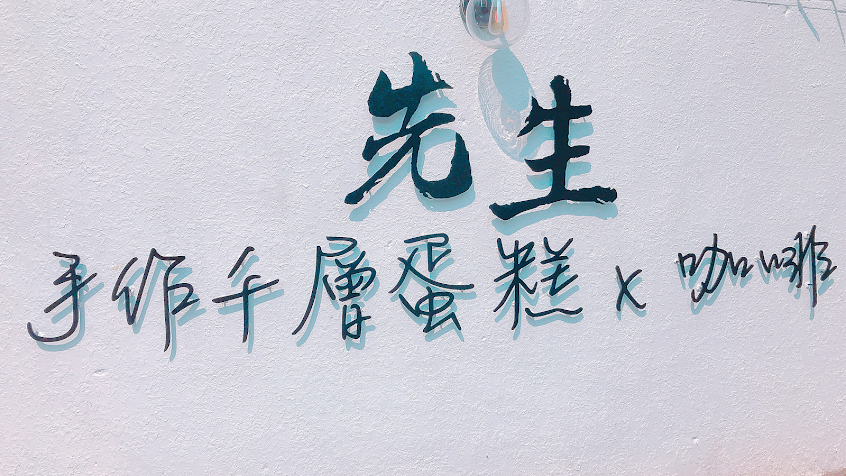 先生
手作千層蛋糕x咖啡